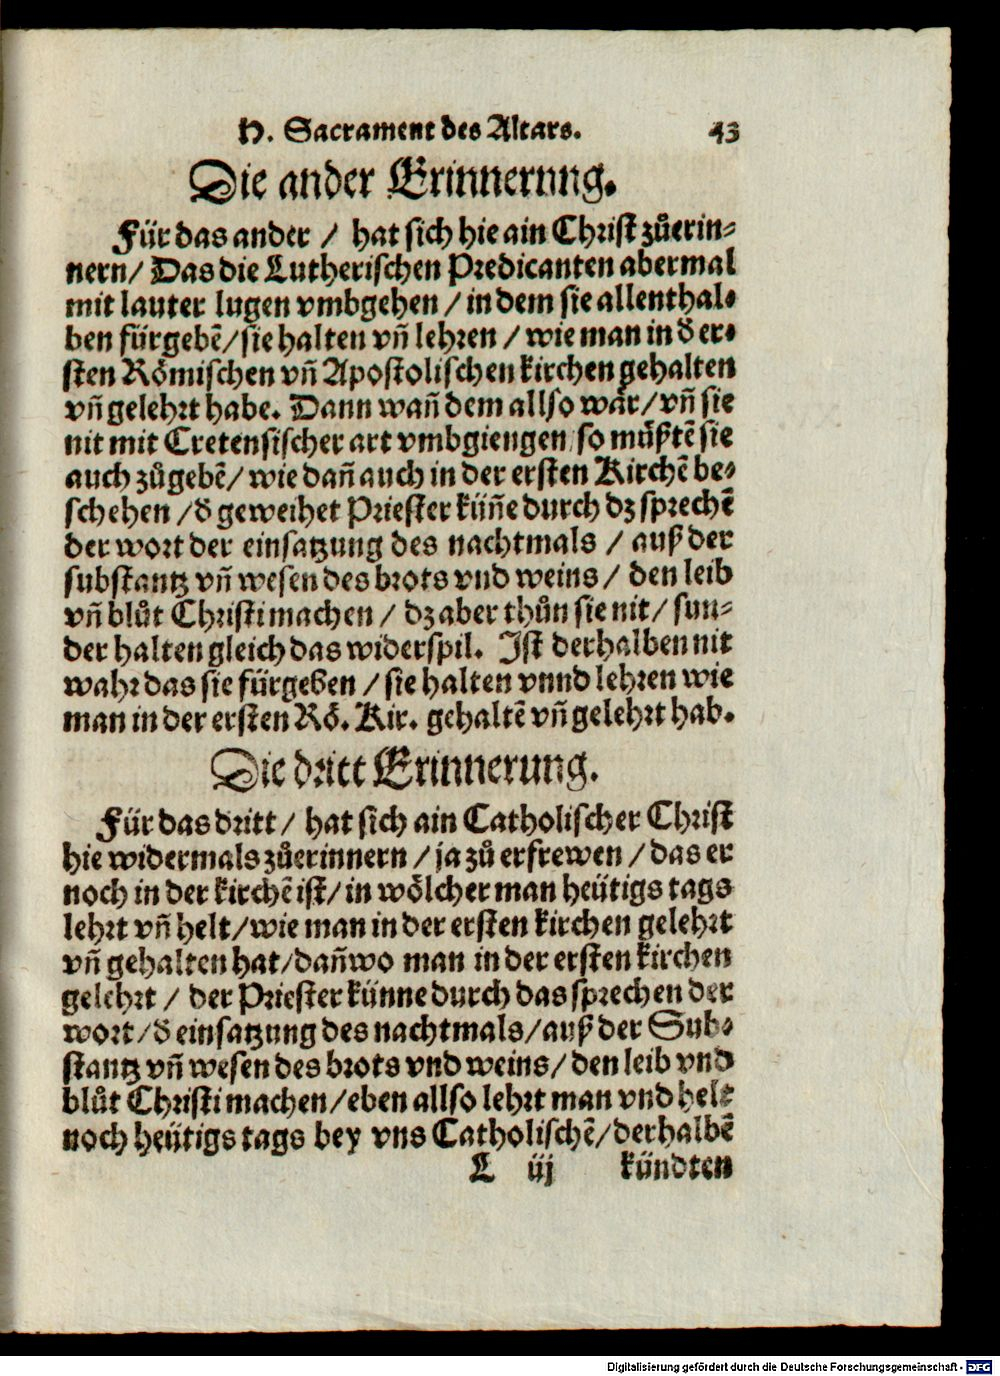 H. Sacrament des Altars. 43
Die ander Erinnerung.
Für das ander / hat sich hie ain Christ zůerin-
nern / Das die Lutherischen Predicanten abermal
mit lauter lugen vmbgehen / in dem sie allenthal-
ben fürgebẽ / sie halten vñ lehren / wie man in d er-
sten Römischen vñ Apostolischen kirchen gehalten
vñ gelehrt habe. Dann wañ dem allso wår / vñ sie
nit mit Cretensischer art vmbgiengen / so můßtẽ sie
auch zůgebẽ / wie dañ auch in der ersten Kirchẽ be-
schehen / d geweihet Priester küñe durch dz sprechẽ
der wort der einsatzung des nachtmals / auß der
substantz vñ wesen des brots vnd weins / den leib
vñ blůt Christi machen / dz aber thůn sie nit / sun-
der halten gleich das widerspil. Ist derhalben nit
wahr das sie fürgeben / sie halten vnnd lehren wie
man in der ersten Rö. Kir. gehaltẽ vñ gelehrt hab.
Die dritt Erinnerung.
Für das dritt / hat sich ain Catholischer Christ
hie widermals zůerinnern / ja zů erfrewen / das er
noch in der kirchẽ ist / in wölcher man heütigs tags
lehrt vñ helt / wie man in der ersten kirchen gelehrt
vñ gehalten hat / dañ wo man in der ersten kirchen
gelehrt / der Priester künne durch das sprechen der
wort / d einsatzung des nachtmals / auß der Sub-
stantz vñ wesen des brots vnd weins / den leib vnd
blůt Christi machen / eben allso lehrt man vnd helt
noch heütigs tags bey vns Catholischẽ / derhalbẽ
L iij kündten
Digitalisierung gefördert durch die Deutsche Forschungsgemeinschaft - DFG